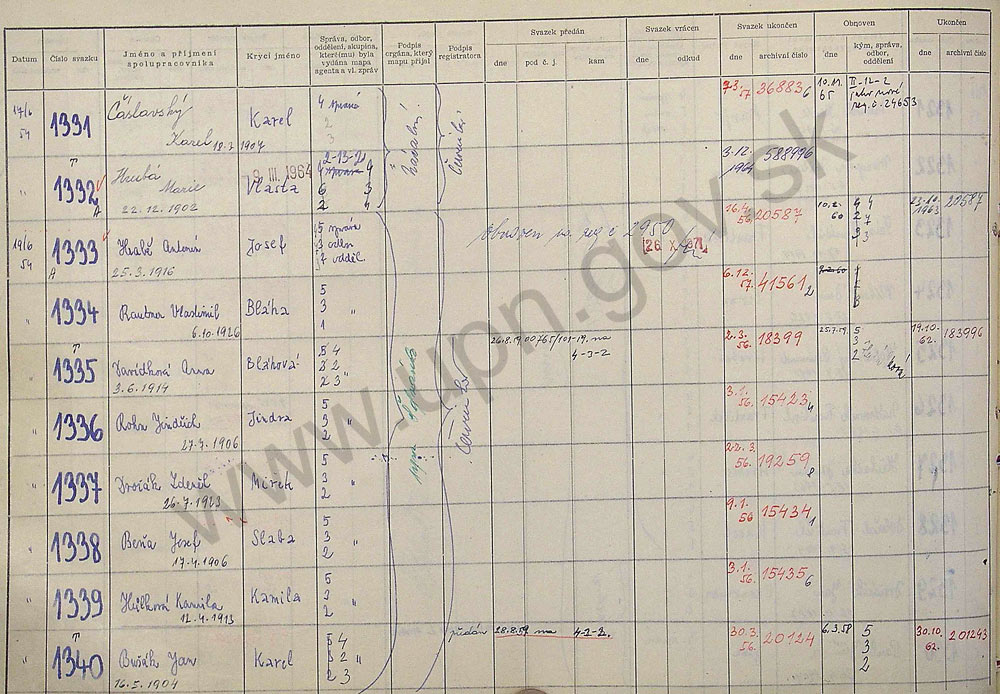 Datum
Číslo svazku
Jméno a příjmení
spolupracovníka
Krycí jméno
Správa, odbor,
oddělení, skupina,
kterému byla
vydána mapa
agenta a vl. zpráv
Podpis
orgána, který
mapu přijal
Podpis
registratora
Svazek předán
dne
pod č. j.
kam
Svazek vrácen
dne
odkud
Svazek ukončen
dne
archivní číslo
Obnoven
dne
kým, správa,
odbor,
oddělení
Ukončen
dne
archivní číslo
17/6
54
1331
Čáslavský
Karel 18.2 1907
Karel
4 správa
2
3
73.
57.
36883 6
10.11.
65
II-12-2
jako nové
reg.č. 24653
1332
A
Hrubá
Marie
22.12.1902
9. III. 1964
Vlasta
2-13-2
4 správa 4
6 3
2 4
3.12.
1964
588996
19/6
54
1333
A
Hrabě Antonín
25.3.1916
Josef
5 správa
3 odbor
2 odděl.
Obnoven reg č 2950
26 X.
16.4.
56.
20587
10.2.
60
23.10.
1963
20587
" 1334
Raubner Vlastimil
6.10.1926
Bláha
5
3 "
1
6.12.
57.
41561 2
" 1335
Davídková Anna
3.6.1914
Bláhová
5 4
2 2
2 3 "
26.8.59 00765/101-19, na
4-2-2
2.3.
56.
18399
25.7.59.
5
3
2
19.10.
62.
183996
" 1336
Rohn Jindřich
27.4.1906
Jindra
5
3 "
2
3.1.
56.
15423 4
" 1337
Dvořák Zdeněk
26.7.1923
Mirek
5
3 "
2
22.3.
56.
19259 8
" 1338
Beňa Josef
17.4.1906
Slaba
5
3 "
2
9.1.
56
15434 1
" 1339
Hůlková Kamila
12.4.1913
Kamila
5
3 "
2
3.1.
56.
15435 6
" 1340
Bušák Jan
16.5.1904
Karel
5 4
3 2 "
2 3
předán 28.8.59 na 4-2-2.
30.3.
56.
20124
6.3.58
5
3
2
30.10.
62.
201243
www.upn.gov.sk